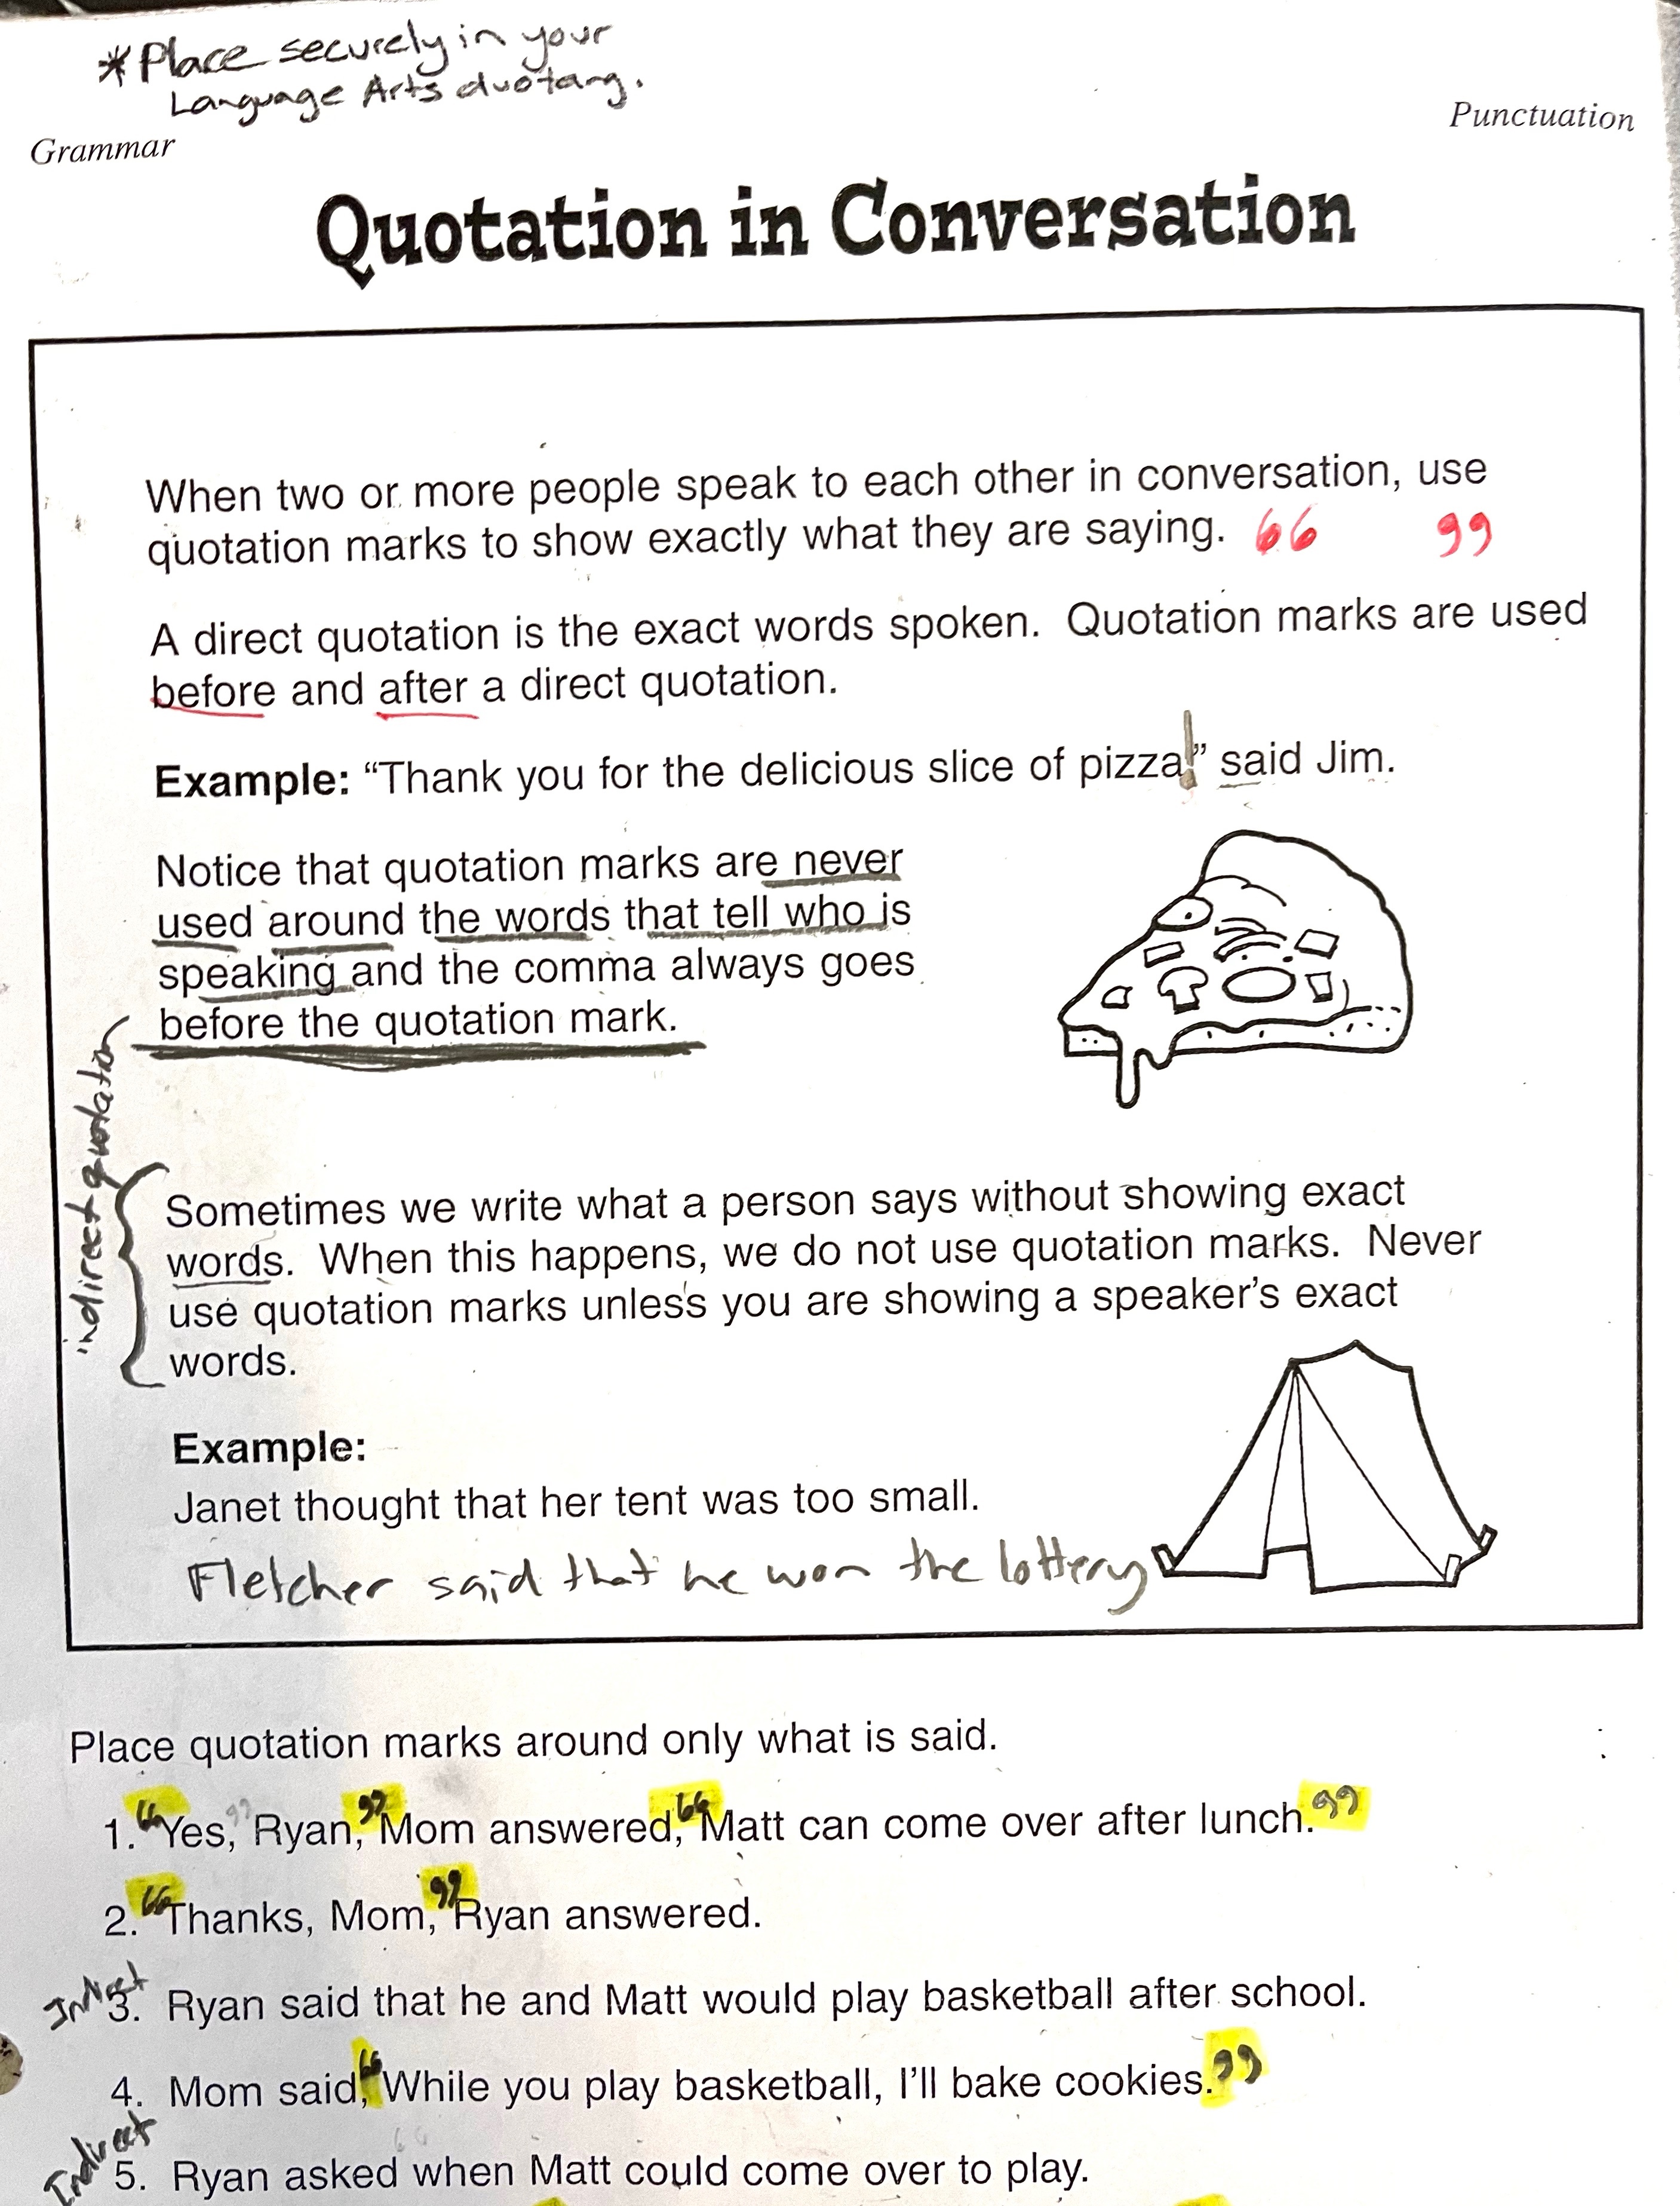 *Place securely in your
Language Arts duotang.
Grammar
Punctuation
Quotation in Conversation
When two or more people speak to each other in conversation, use
quotation marks to show exactly what they are saying. 66 99
A direct quotation is the exact words spoken. Quotation marks are used
before and after a direct quotation.
Example: “Thank you for the delicious slice of pizza!” said Jim.
Notice that quotation marks are never
used around the words that tell who is
speaking and the comma always goes
before the quotation mark.
indirect quotation
Sometimes we write what a person says without showing exact
words. When this happens, we do not use quotation marks. Never
use quotation marks unless you are showing a speaker’s exact
words.
Example:
Janet thought that her tent was too small.
Fletcher said that he won the lottery
Place quotation marks around only what is said.
1. “Yes, Ryan,” Mom answered, “Matt can come over after lunch.”
2. “Thanks, Mom,” Ryan answered.
Indirect 3. Ryan said that he and Matt would play basketball after school.
4. Mom said, “While you play basketball, I’ll bake cookies.”
Indirect 5. Ryan asked when Matt could come over to play.